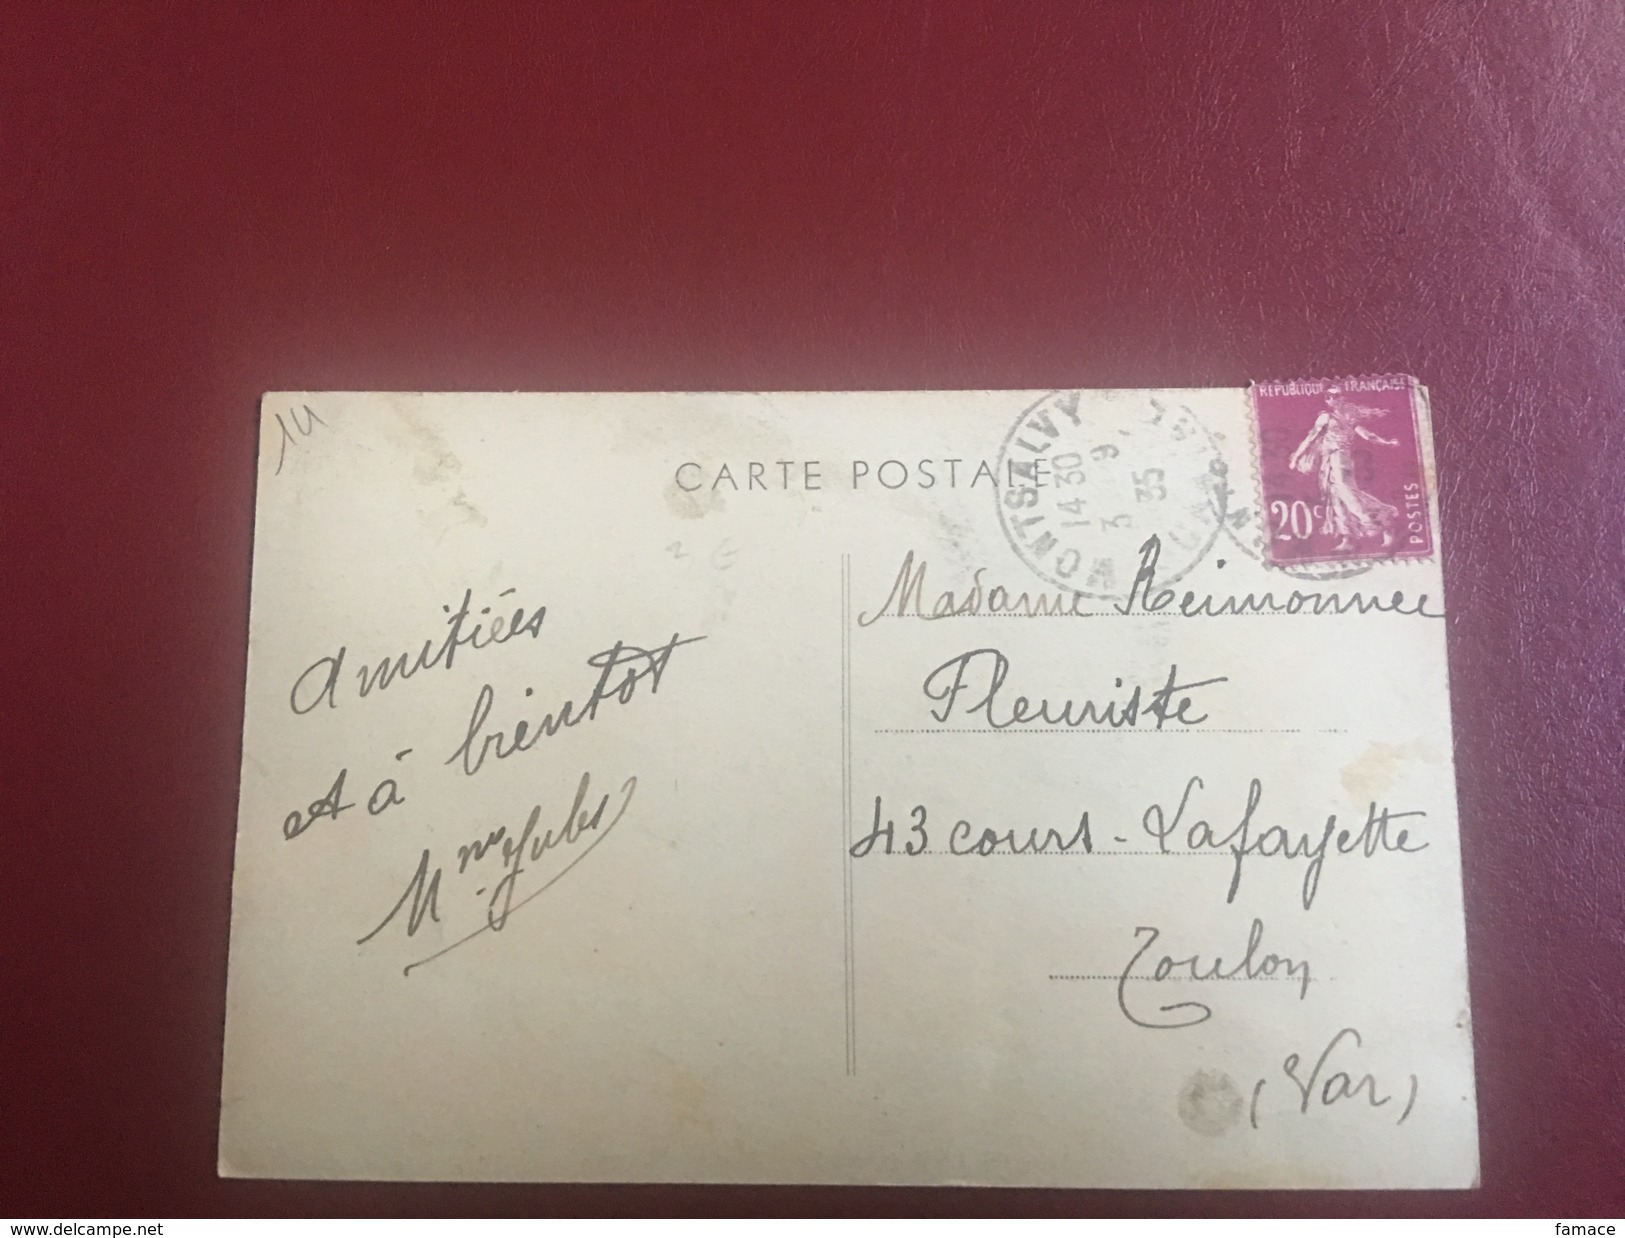 14
CARTE POSTALE
MONTSALVY
14 30
3 9
35
REPUBLIQUE FRANÇAISE
20c
POSTES
Amitiées
et à bientot
Mme Jules
Madame Reimonnec
Fleuriste
43 cours Lafayette
Toulon
(Var)
delcampe.net
famace